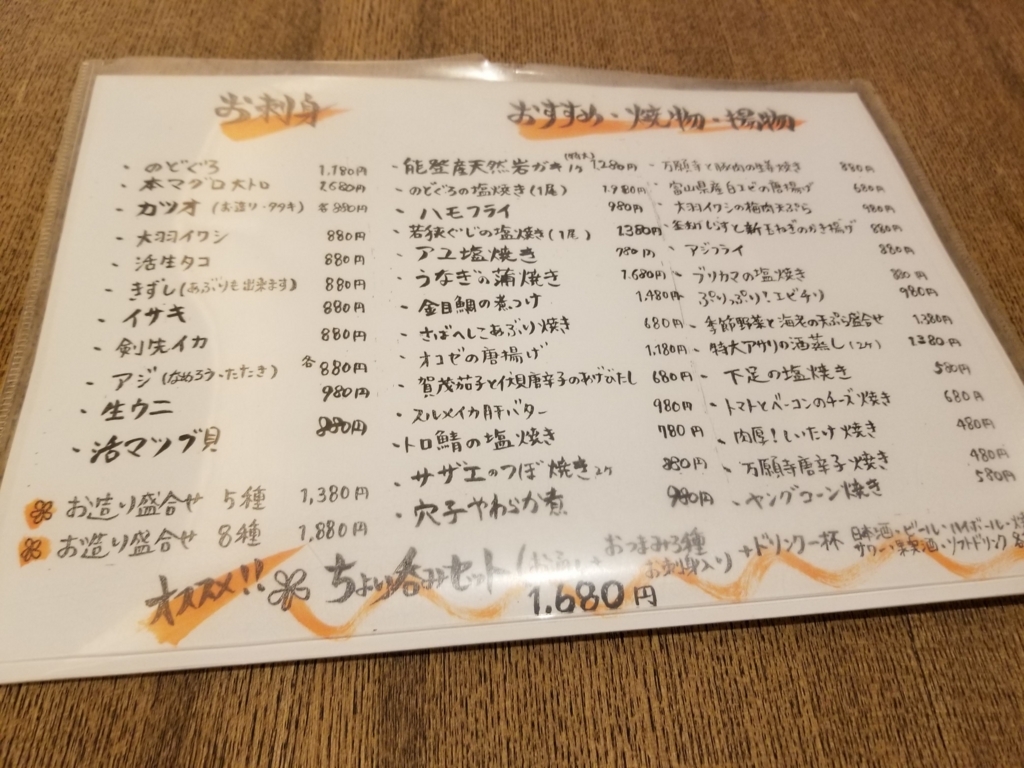 お刺身
・のどぐろ 1,180円
・本マグロ大トロ 2,680円
・カツオ(お造り・タタキ) 各880円
・大羽イワシ 880円
・活生タコ 880円
・きずし(あぶりも出来ます) 880円
・イサキ 880円
・剣先イカ 880円
・アジ(なめろう・たたき) 各880円
・生ウニ 980円
・活マツブ貝 880円
お造り盛合せ 5種 1,380円
お造り盛合せ 8種 1,880円
おすすめ・焼物・揚物
・能登産天然岩ガキ(特大)1ケ 1,280円
・のどぐろの塩焼き(1尾) 1,980円
・ハモフライ 980円
・若狭ぐじの塩焼き(1尾) 1380円
・アユ塩焼き 780円
・うなぎの蒲焼き 1,680円
・金目鯛の煮つけ 1,480円
・さばへしこあぶり焼き 680円
・オコゼの唐揚げ 1,180円
・賀茂茄子と伏見唐辛子のあげびたし 680円
・スルメイカ肝バター 980円
・トロ鯖の塩焼き 780円
・サザエのつぼ焼き2ケ 880円
・穴子やわらか煮 980円
・万願寺と豚肉の生姜焼き 880円
・富山県産白エビの唐揚げ 680円
・大羽イワシの梅肉天ぷら 980円
・釜あげしらすと新玉ねぎのかき揚げ 880円
・アジフライ 880円
・ブリカマの塩焼き 880円
・ぷりっぷり!エビチリ 980円
・季節野菜と海老の天ぷら盛合せ 1,380円
・特大アサリの酒蒸し(2ケ) 1380円
・下足の塩焼き 580円
・トマトとベーコンのチーズ焼き 680円
・肉厚!しいたけ焼き 480円
・万願寺唐辛子焼き 480円
・ヤングコーン焼き 580円
オススメ!! ちょい呑みセット(お通し+おつまみ3種
お刺身入り)+ドリンク一杯
日本酒・ビール・ハイボール・焼
サワー・果実酒・ソフトドリンク
1.680円